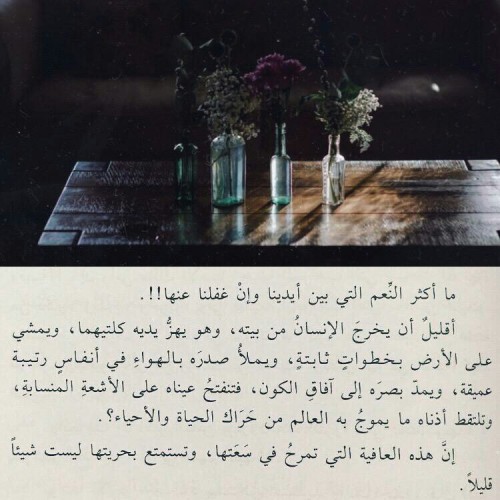 ما أكثر النِّعم التي بين أيدينا وإنْ غفلنا عنها!!.
أقليلٌ أن يخرجَ الإنسانُ من بيته، وهو يهزُّ يديه كلتيهما، ويمشي
على الأرض بخطواتٍ ثابتةٍ، ويملأُ صدرَه بالهواءِ في أنفاسٍ رتيبة
عميقة، ويمدّ بصرَه إلى آفاقِ الكون، فتنفتحُ عيناه على الأشعةِ المنسابةِ،
وتلتقط أذناه ما يموجُ به العالم من حَرَاك الحياة والأحياء؟.
إنَّ هذه العافية التي تمرحُ في سَعَتها، وتستمتع بحريتها ليست شيئاً
قليلاً.